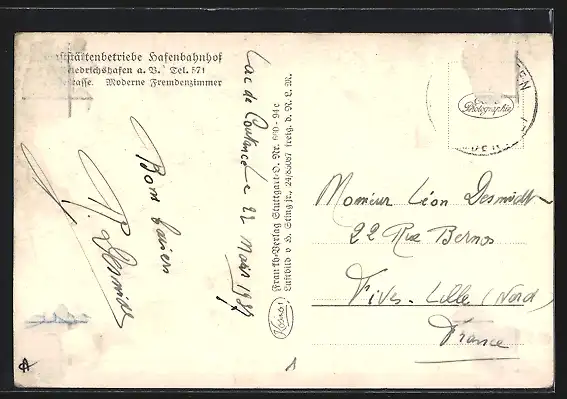 ststättenbetriebe Hafenbahnhof
iedrichshafen a. B. Tel. 571
rasse. Moderne Fremdenzimmer
Lac de Constance le 22 Mars 1937
Bons baisers
P. Desmidt
Frauth-Verlag Stuttgart-O. Nr.
Luftbild
freig. d. R. L. M.
Photographie
EN
Monsieur Léon Desmidt
22 Rue Bernos
Fives-Lille (Nord)
France